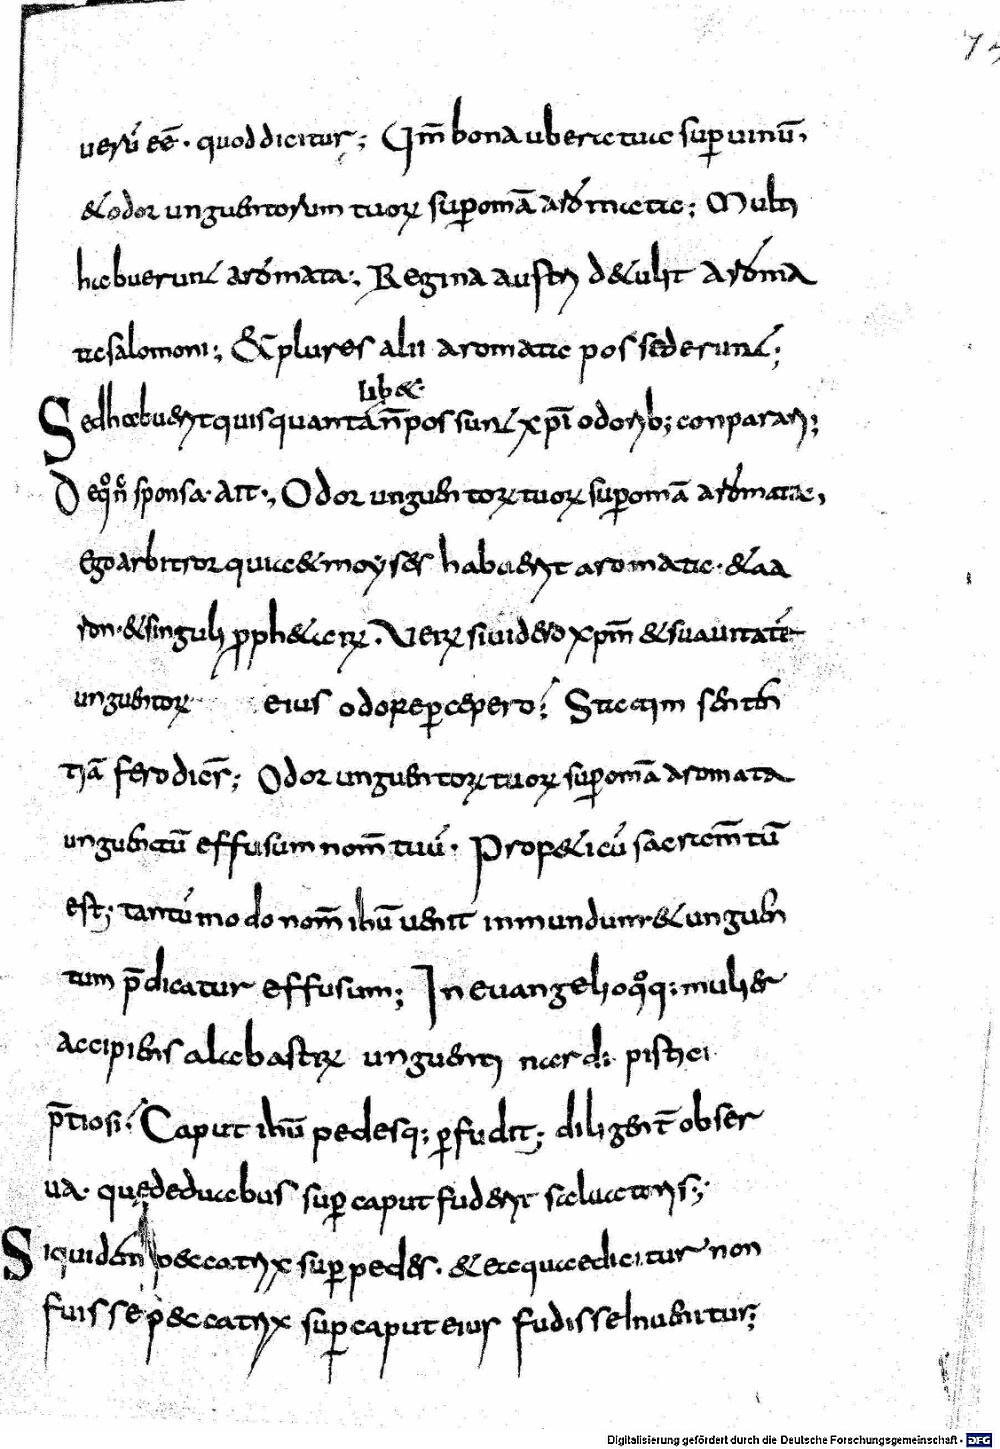 75
ueru͛ eē· quod dicitur; Qm̄ bona ubera tua sup̱ uinū,
& odor unguentorum tuoꝝ sup̱ omā aromata; Multi
habuerunt aromata; Regina austri d&ulit aroma
ta salomoni; & plures alii aromata possederunt;
lib&
Sed habuerit quis quanta n̄ possunt xp̄i odorib; conparari;
De qͦ nc̄ sponsa· ait·, Odor unguentoꝝ tuoꝝ sup̱ omā aromata,
Ego arbitror quia & moyses habuerit aromata· & aa
ron· & singuli ꝓph&arꝝ. Veꝝ si uidero xp̄m & suauitatē
unguentoꝝ eius odore p̱cepero; Statim senten
tiā fero dicen̄s; Odor unguentoꝝ tuoꝝ sup̱ omā aromata
unguentū effusum nom̄ tuū· Proph&icū sacram̄tū
est; tantū modo nom̄ ihū uenit in mundum & unguen
tum p̄dicatur effusum; In euangelio qͦq; mulier
accipiens alabastrꝝ unguenti nardi pistici
p̄tiosi· Caput ihū pedesq; p̱fudit; diligent̄ obser
ua· que de duabus sup̱ caput fuderit saluatoris;
Siquidem peccatrix sup̱ pedes· & ea quae dicitur non
fuisse peccatrix sup̱ caput eius fudisse Inuenitur;
Digitalisierung gefördert durch die Deutsche Forschungsgemeinschaft - DFG